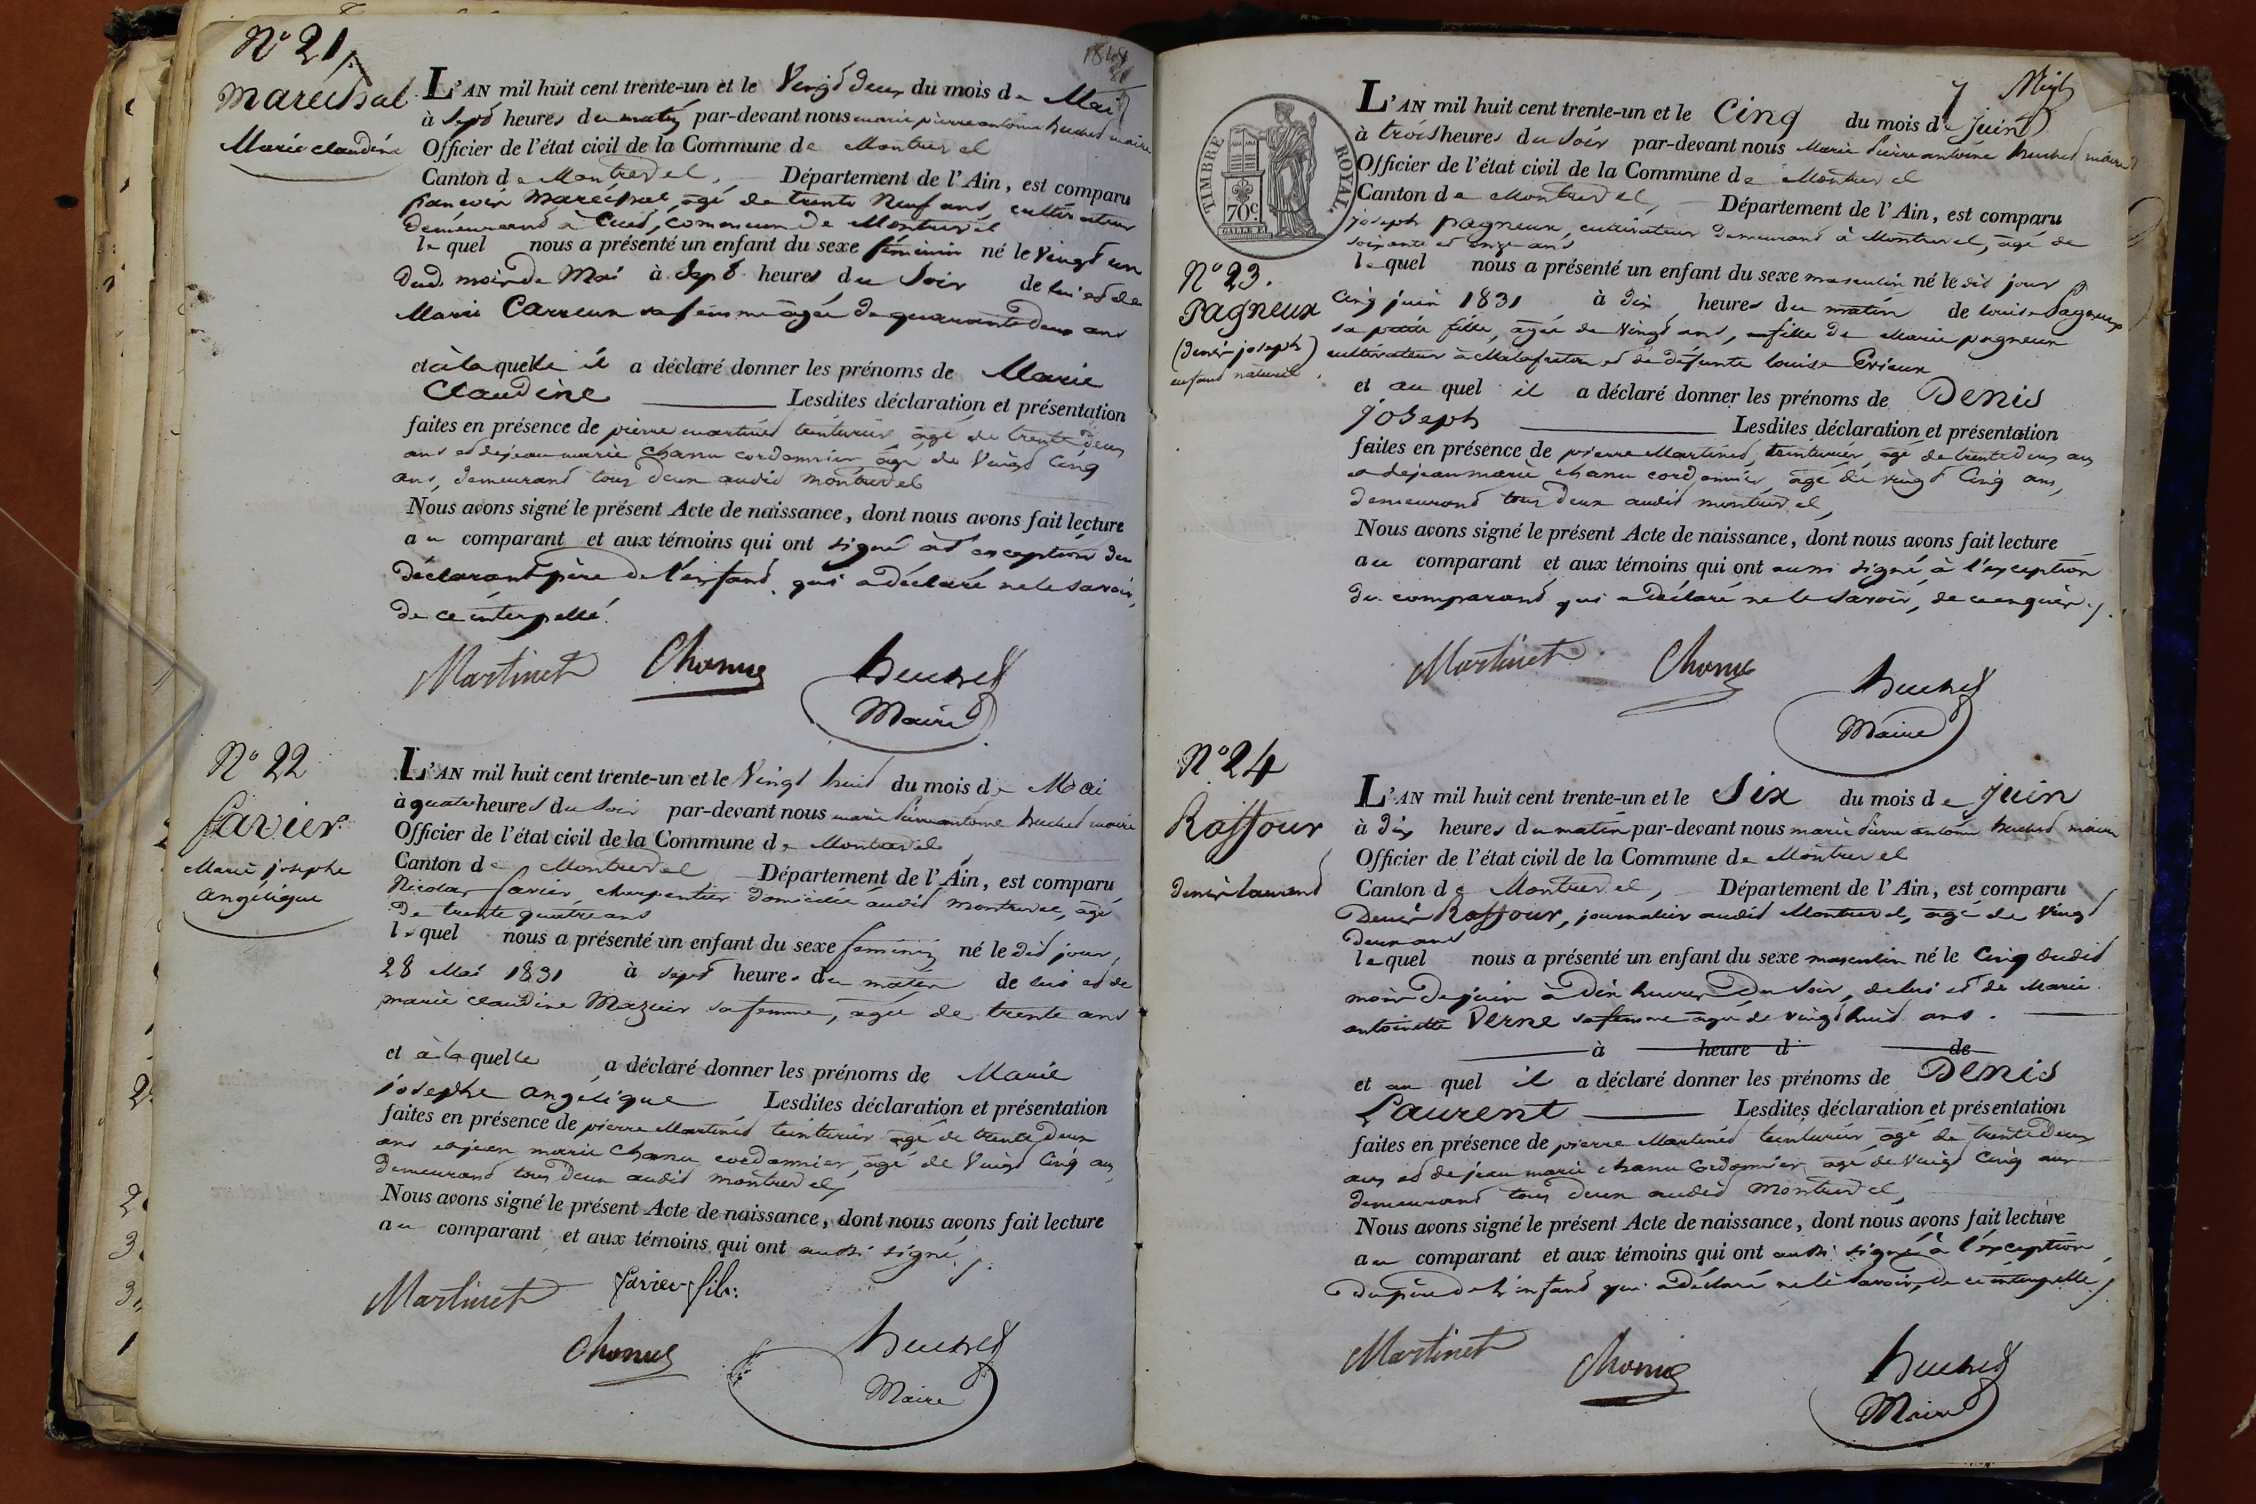 N° 21
Maréchal
Marie Claudine
L'AN mil huit cent trente-un et le Vingt deux du mois de Mai
à sept heures du matin par-devant nous marie pierre antoine maire
Officier de l'état civil de la Commune de Montrevel
Canton de Montrevel, Département de l'Ain, est comparu
françois Maréchal, agé de trente Neuf ans, cultivateur
demeurant à Cuet, commune de Montrevel
lequel nous a présenté un enfant du sexe féminin né le vingt un
dud. mois de Mai à Sept heures du Soir de lui et de
Marie Carreux sa femme agée de quarante deux ans
et à laquelle il a déclaré donner les prénoms de Marie
Claudine Lesdites déclaration et présentation
faites en présence de pierre martinet teinturier, agé de trente deux
ans et de jean marie Chanu cordonnier agé de Vingt Cinq
ans, demeurant tous deux audit montrevel
Nous avons signé le présent Acte de naissance, dont nous avons fait lecture
au comparant et aux témoins qui ont signé à l'exception du
déclarant père de l'enfant, qui a déclaré ne le savoir,
de ce interpellé.
Martinet Chanu
Maire
N° 22
favier
Marie josephe
angélique
L'AN mil huit cent trente-un et le Vingt huit du mois de Mai
à quatre heures du Soir par-devant nous marie pierre antoine maire
Officier de l'état civil de la Commune de Montrevel
Canton de Montrevel Département de l'Ain, est comparu
Nicolas favier charpentier domicilié audit montrevel, agé
de trente quatre ans
lequel nous a présenté un enfant du sexe féminin né le dit jour,
28 Mai 1831 à sept heures du matin de lui et de
marie claudine Mazuir sa femme, agée de trente ans
et à laquelle a déclaré donner les prénoms de Marie
josephe angélique Lesdites déclaration et présentation
faites en présence de pierre Martinet teinturier agé de trente deux
ans et jean marie Chanu cordonnier, agé de Vingt Cinq ans
demeurant tous deux audit montrevel
Nous avons signé le présent Acte de naissance, dont nous avons fait lecture
au comparant et aux témoins qui ont aussi signé
Martinet favier fils
Chanu
Maire
TIMBRE ROYAL
70 c.
L'AN mil huit cent trente-un et le Cinq du mois de juin
à trois heures du Soir par-devant nous Marie Pierre antoine maire
Officier de l'état civil de la Commune de Montrevel
Canton de Montrevel Département de l'Ain, est comparu
joseph pagneux, cultivateur demeurant à Montrevel, agé de
soixante et onze ans
N° 23.
Pagneux
(denis joseph)
enfant naturel
lequel nous a présenté un enfant du sexe masculin né le dit jour
Cinq juin 1831 à dix heures du matin de louise Pagneux
sa petite fille, agée de Vingt ans, fille de Marie pagneux
cultivateur à Malafretaz et de défunte louise
et auquel il a déclaré donner les prénoms de Denis
joseph Lesdites déclaration et présentation
faites en présence de pierre Martinet, teinturier, agé de trente deux ans
et de jean marie chanu cordonnier, agé de vingt Cinq ans,
demeurant tous deux audit montrevel,
Nous avons signé le présent Acte de naissance, dont nous avons fait lecture
au comparant et aux témoins qui ont aussi signé à l'exception
du comparant qui a déclaré ne le Savoir, de ce enquis
Martinet Chanu
Maire
N° 24
Raffour
denis laurent
L'AN mil huit cent trente-un et le Six du mois de juin
à dix heures du matin par-devant nous marie Pierre antoine maire
Officier de l'état civil de la Commune de Montrevel
Canton de Montrevel, Département de l'Ain, est comparu
Denis Raffour, journalier audit Montrevel, agé de Vingt
deux ans
lequel nous a présenté un enfant du sexe masculin né le Cinq dudit
mois de juin à Dix heures du Soir, de lui et de Marie
antoinette Verne sa femme agée de vingt huit ans.
à heure d de
et au quel il a déclaré donner les prénoms de Denis
Laurent Lesdites déclaration et présentation
faites en présence de pierre Martinet teinturier, agé de trente deux
ans et de jean marie chanu Cordonnier agé de Vingt Cinq ans
demeurant tous deux audit Montrevel,
Nous avons signé le présent Acte de naissance, dont nous avons fait lecture
au comparant et aux témoins qui ont aussi signé à l'exception
du père de l'enfant qui a déclaré ne le Savoir, de ce interpellé
Martinet Chanu
Maire